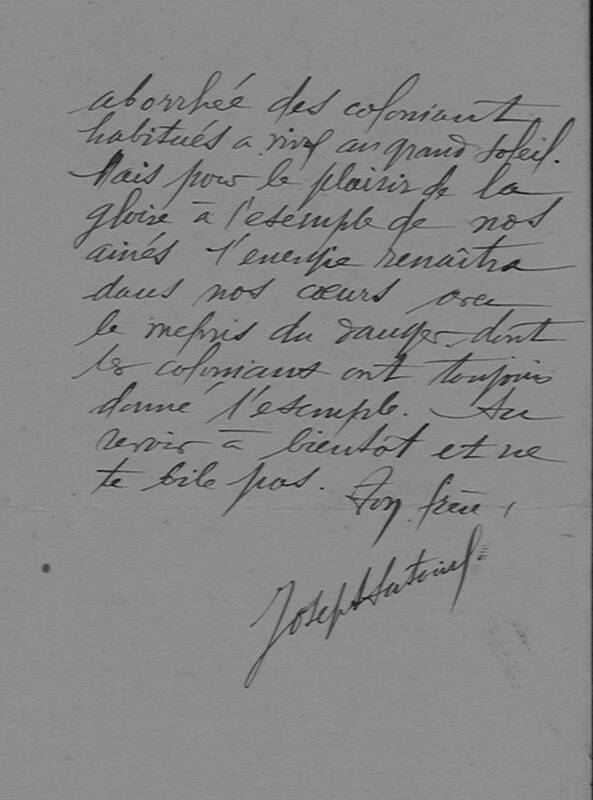 aborrhée des coloniaux
habitués a vivre au grand soleil.
Mais pour le plaisir de la
gloire à l'esemple de nos
ainés l'energie renaîtra
dans nos cœurs avec
le mepris du danger dont
les coloniaus ont toujours
donné l'esemple. Au
revoir à bientôt et ne
te bile pas. Ton frère,
Joseph